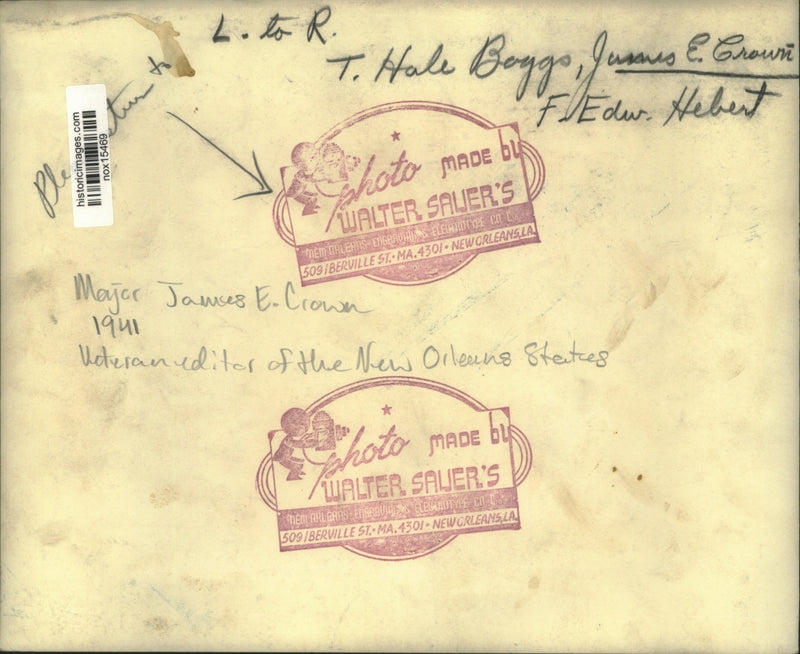 L. to R.
T. Hale Boggs, James E. Crown
F. Edw. Hebert
to
historicimages.com
nox15469
photo MADE by
WALTER SAUER'S
NEW ORLEANS ENGRAVING & ELECTROTYPE CO.
509 IBERVILLE ST. • MA. 4301 • NEW ORLEANS, LA.
Major James E. Crown
1941
Veteran editor of the New Orleans States
photo MADE by
WALTER SAUER'S
NEW ORLEANS ENGRAVING & ELECTROTYPE CO.
509 IBERVILLE ST. • MA. 4301 • NEW ORLEANS, LA.